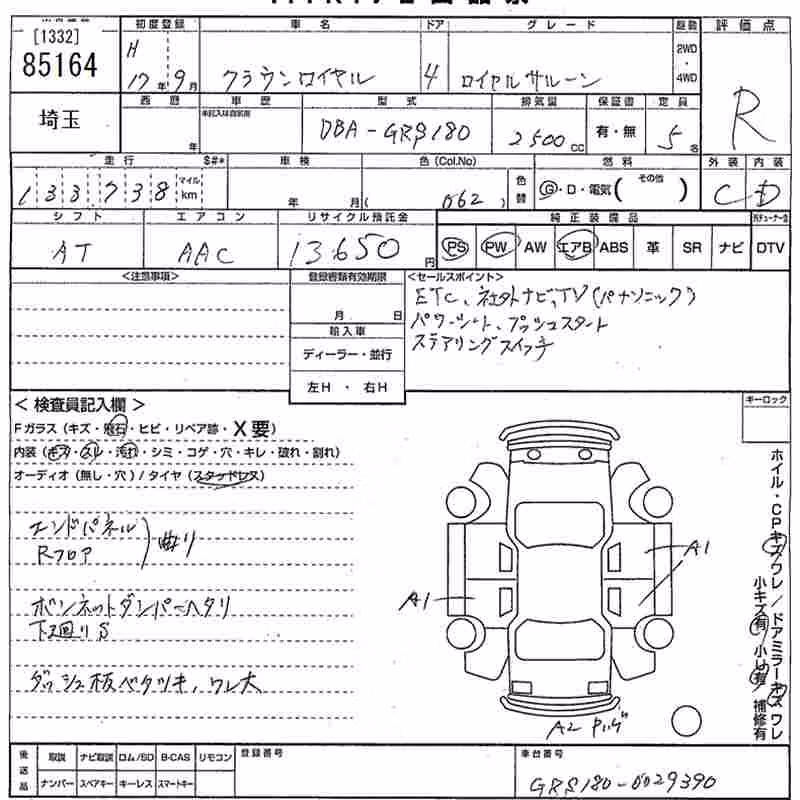 [1332]
85164
初度登録 車名 ドア グレード 駆動 評価点
H 17年 9月 クラウンロイヤル 4 ロイヤルサルーン 2WD・4WD R
埼玉
西暦 車歴 型式 排気量 保証書 定員
年 未記入は自家用 DBA-GRS180 2500cc 有・無 5名
走行 $#* 車検 色(Col.No) 燃料 外装 内装
133738 マイル km 年 月( 062 ) 色替 G・D・電気( その他 ) C D
シフト エアコン リサイクル預託金 純正装備品
AT AAC 13650円 PS PW AW エアB ABS 革 SR ナビ DTV
<注意事項> 登録書類有効期限 <セールスポイント>
月 日
輸入車
ディーラー・並行
左H ・ 右H
パワーシート、プッシュスタート
ステアリングスイッチ
<検査員記入欄> キーロック
Fガラス(キズ・飛石・ヒビ・リペア跡・X要)
内装(キズ・スレ・汚れ・シミ・コゲ・穴・キレ・破れ・割れ)
オーディオ(無し・穴)/タイヤ(スタッドレス)
エンドパネル
Rフロア
曲り
ボンネットダンパーヘタリ
下廻りS
ダッシュ板ベタツキ、ワレ大
A1
A1
A2
ホイル・CPキズ/ワレ/ドアミラーキズワレ
小キズ有 小凹有 補修有
後送品 取説 ナビ取説 ロム/SD B-CAS リモコン 登録番号 車台番号
ナンバー スペアキー キーレス スマートキー GRS180-0029390